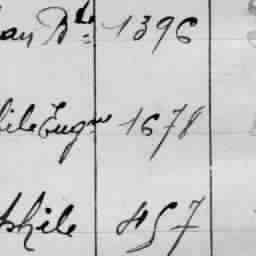 an Bte 1396
ile Eugne 1678
hile 457